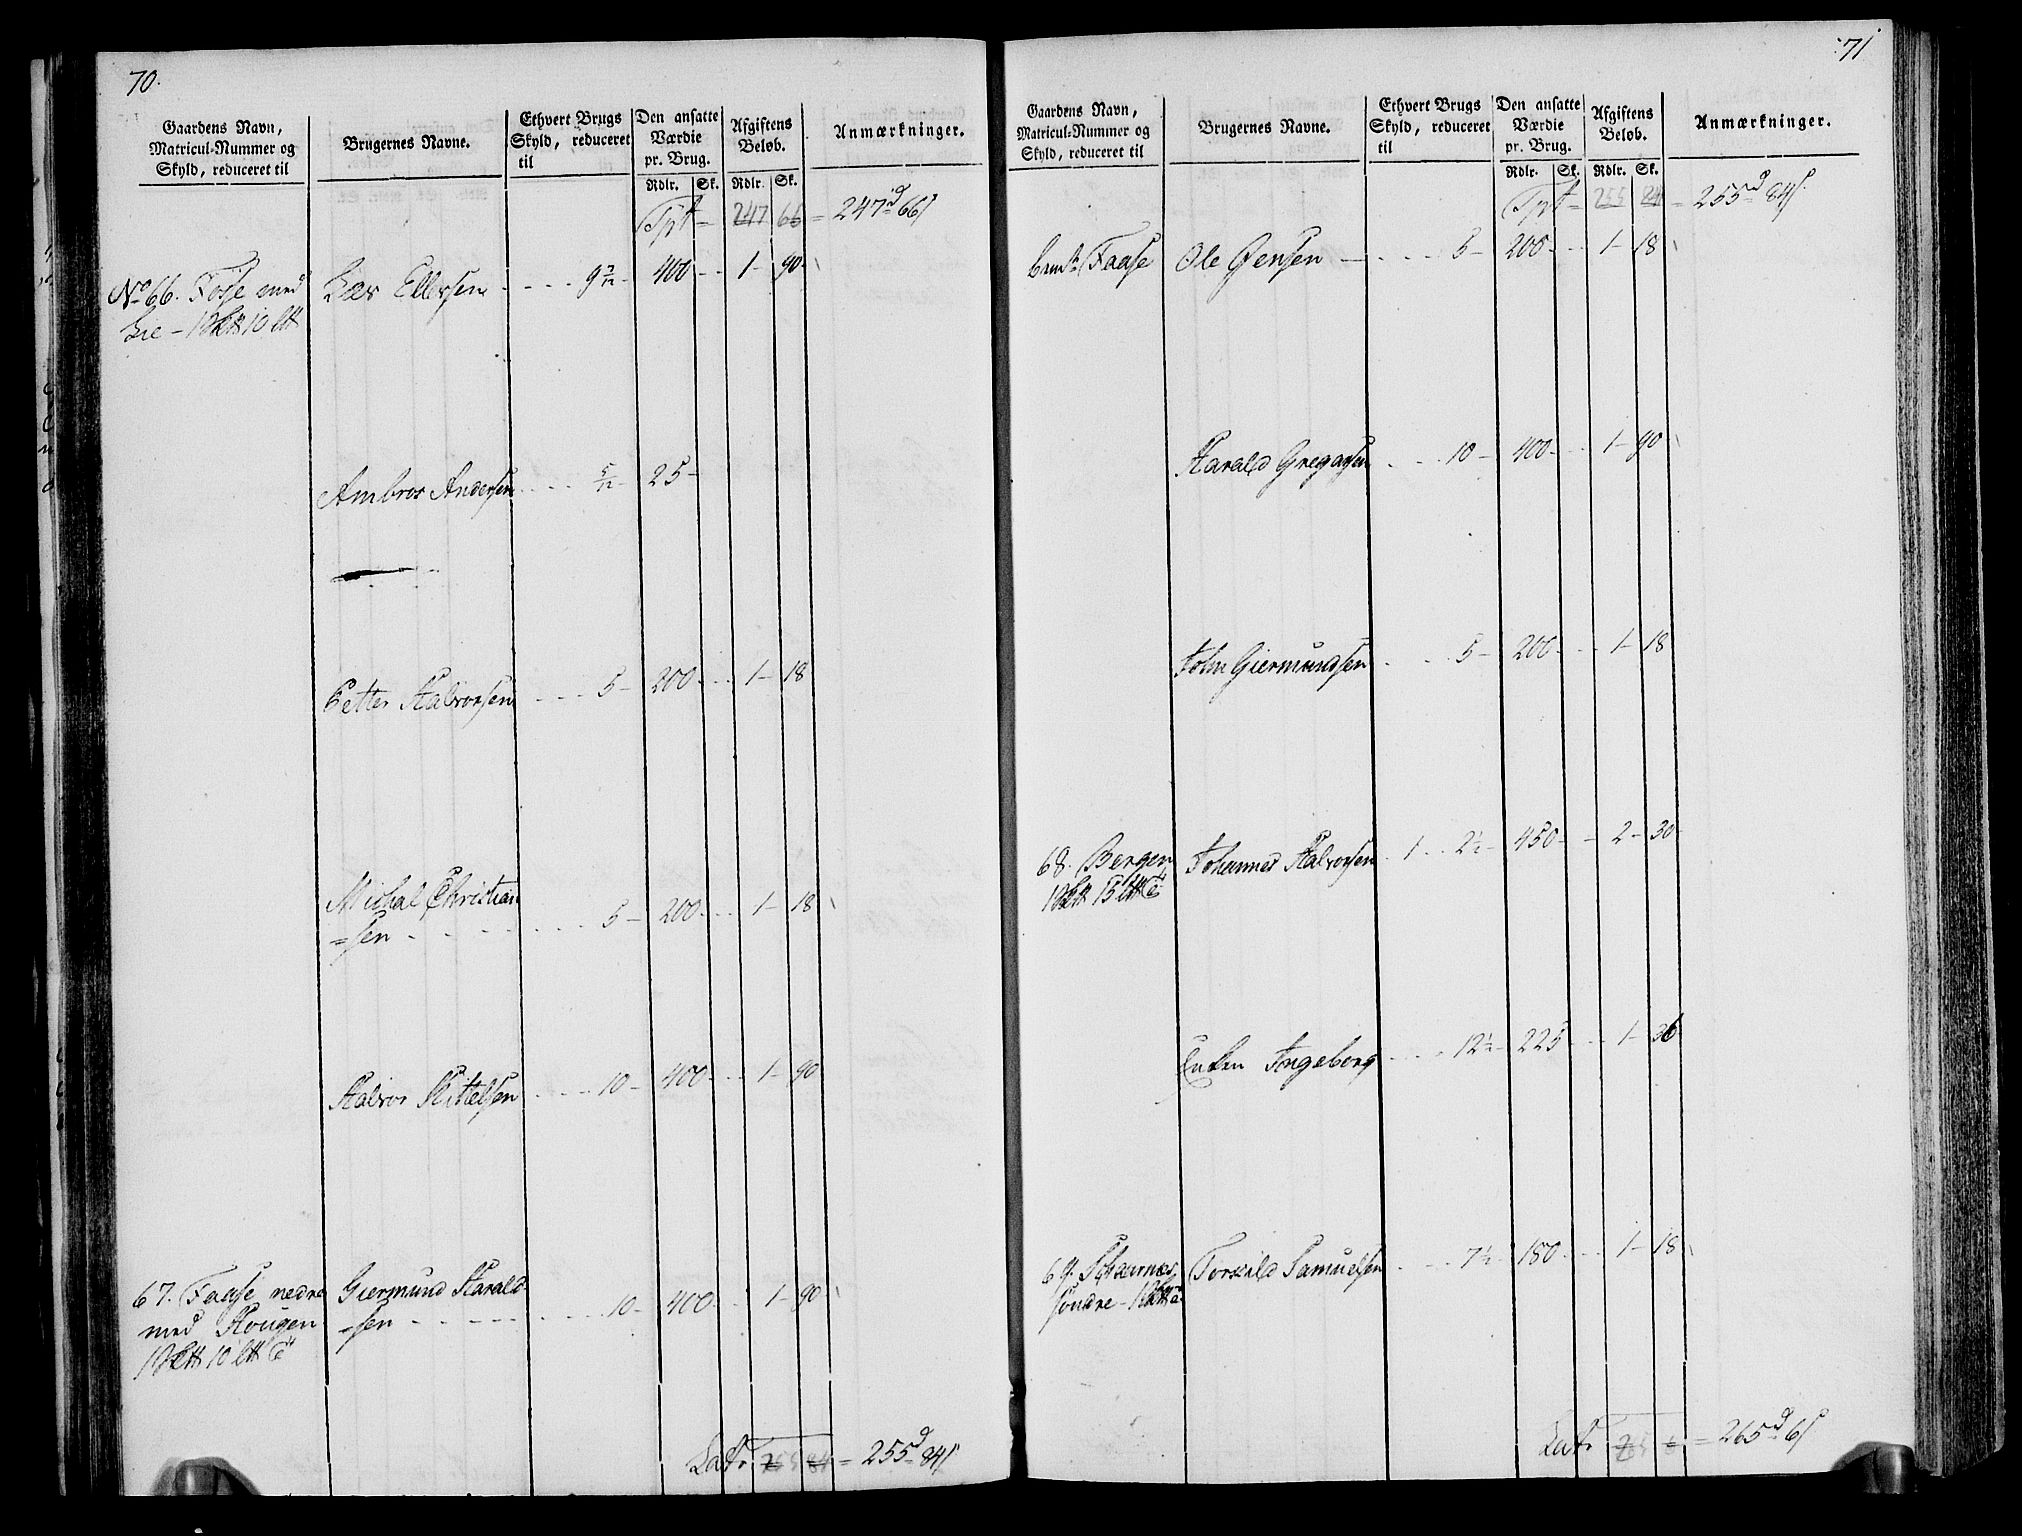 70.
Gaardens Navn,
Matricul-Nummer og
Skyld, reduceret til
Brugernes Navne.
Ethvert Brugs
Skyld, reduceret
til
Den ansatte
Værdie
pr. Brug.
Rdlr. Sk.
Afgiftens
Beløb.
Rdlr. Sk.
Anmærkninger.
Tpt = 247 66 = 247d 66s
No 66. Fosse med Lars Ellefsen 9 7/12 - 400 - - 1 - 90
Lie - 10
Ambros Andersen 5/12 - 25 -
Petter Halvorsen 5 - 200 - - 1 - 18
Michal Christian
=sen 5 - 200 - - 1 - 18
Halvor Kittelsen 10 - 400 - - 1 - 90
67. Faase nedre Giermund Harald
med Hougen =sen 10 - 400 - - 1 - 90
10
Lat. 255 84 = 255d 84s
71
Gaardens Navn,
Matricul-Nummer og
Skyld, reduceret til
Brugernes Navne.
Ethvert Brugs
Skyld, reduceret
til
Den ansatte
Værdie
pr. Brug.
Rdlr. Sk.
Afgiftens
Beløb.
Rdlr. Sk.
Anmærkninger.
Tpt = 255 84 = 255d 84s
Faase Ole Jensen 5 - 200 - - 1 - 18
Harald Gregarsen 10 - 400 - - 1 - 90
John Giermundsen 5 - 200 - - 1 - 18
68. Bergen Johannes Halvorsen 1 - 2 1/2 - 450 - - 2 - 30
15
Enken Ingeborg 12 1/2 - 225 - - 1 - 36
69. Torkild Samuelsen 7 1/2 - 150 - - 1 - 18
søndre
Lat. 265 6 = 265d 6s